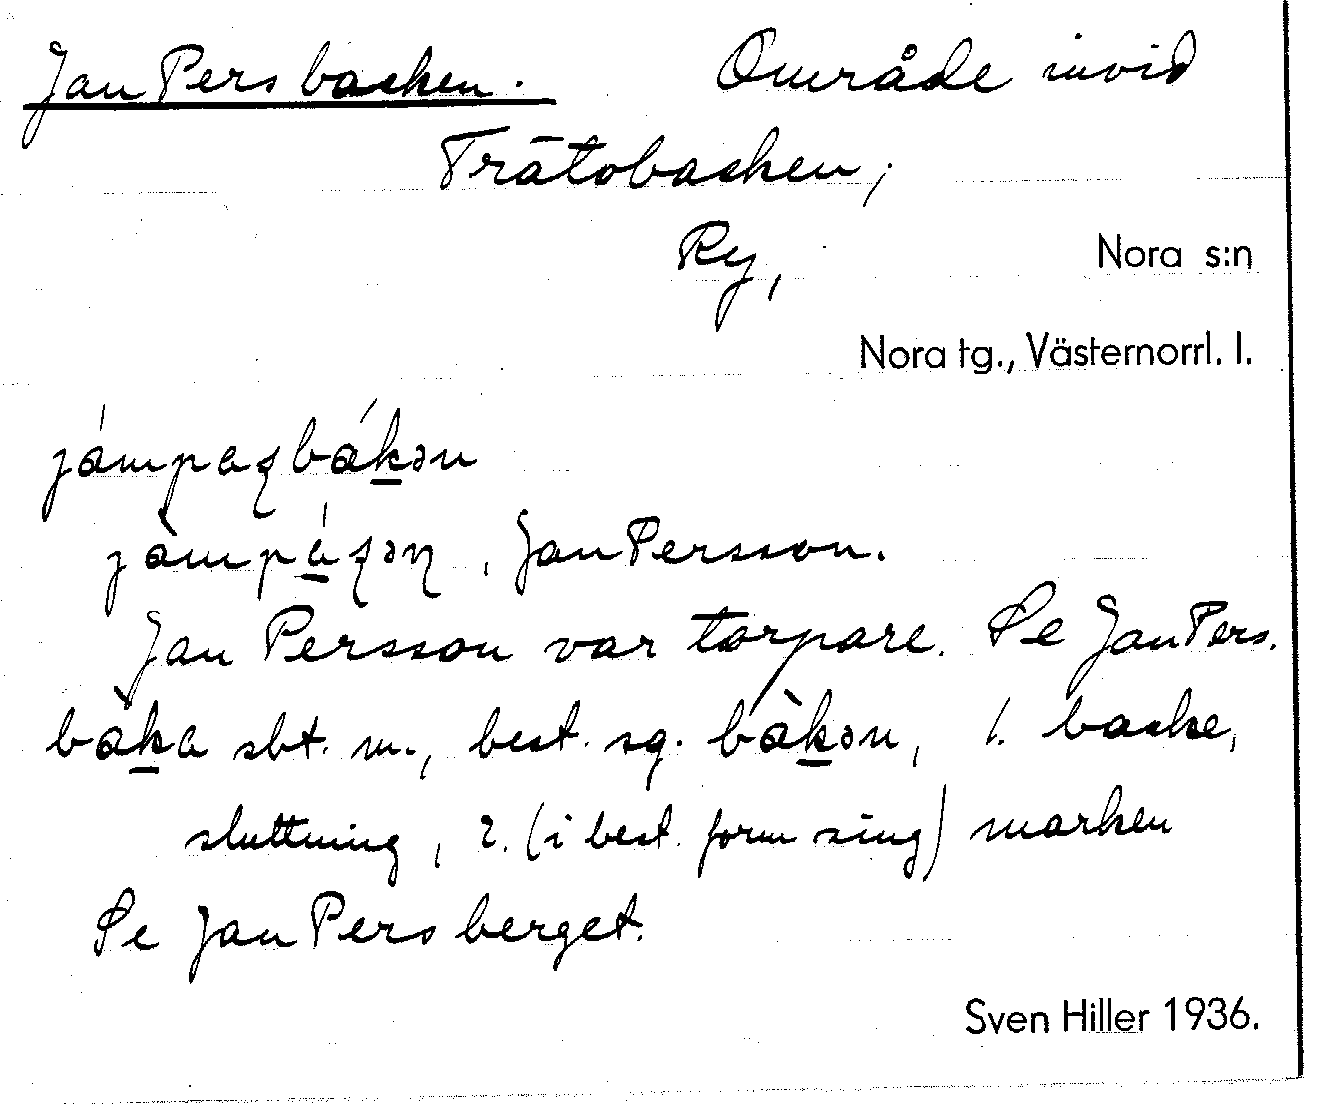 Jan Persbacken. Område invid
Trätobacken,
Ry, Nora s:n
Nora tg., Västernorrl. l.
jámpaʂbákən
jàmpáʂəɳ, Jan Persson.
Jan Persson var torpare. Se Jan Pers.
bàka sbt. m., best. sg. bàkən, 1. backe,
sluttning, 2. (i best. form sing) marken
Se Jan Persberget.
Sven Hiller 1936.